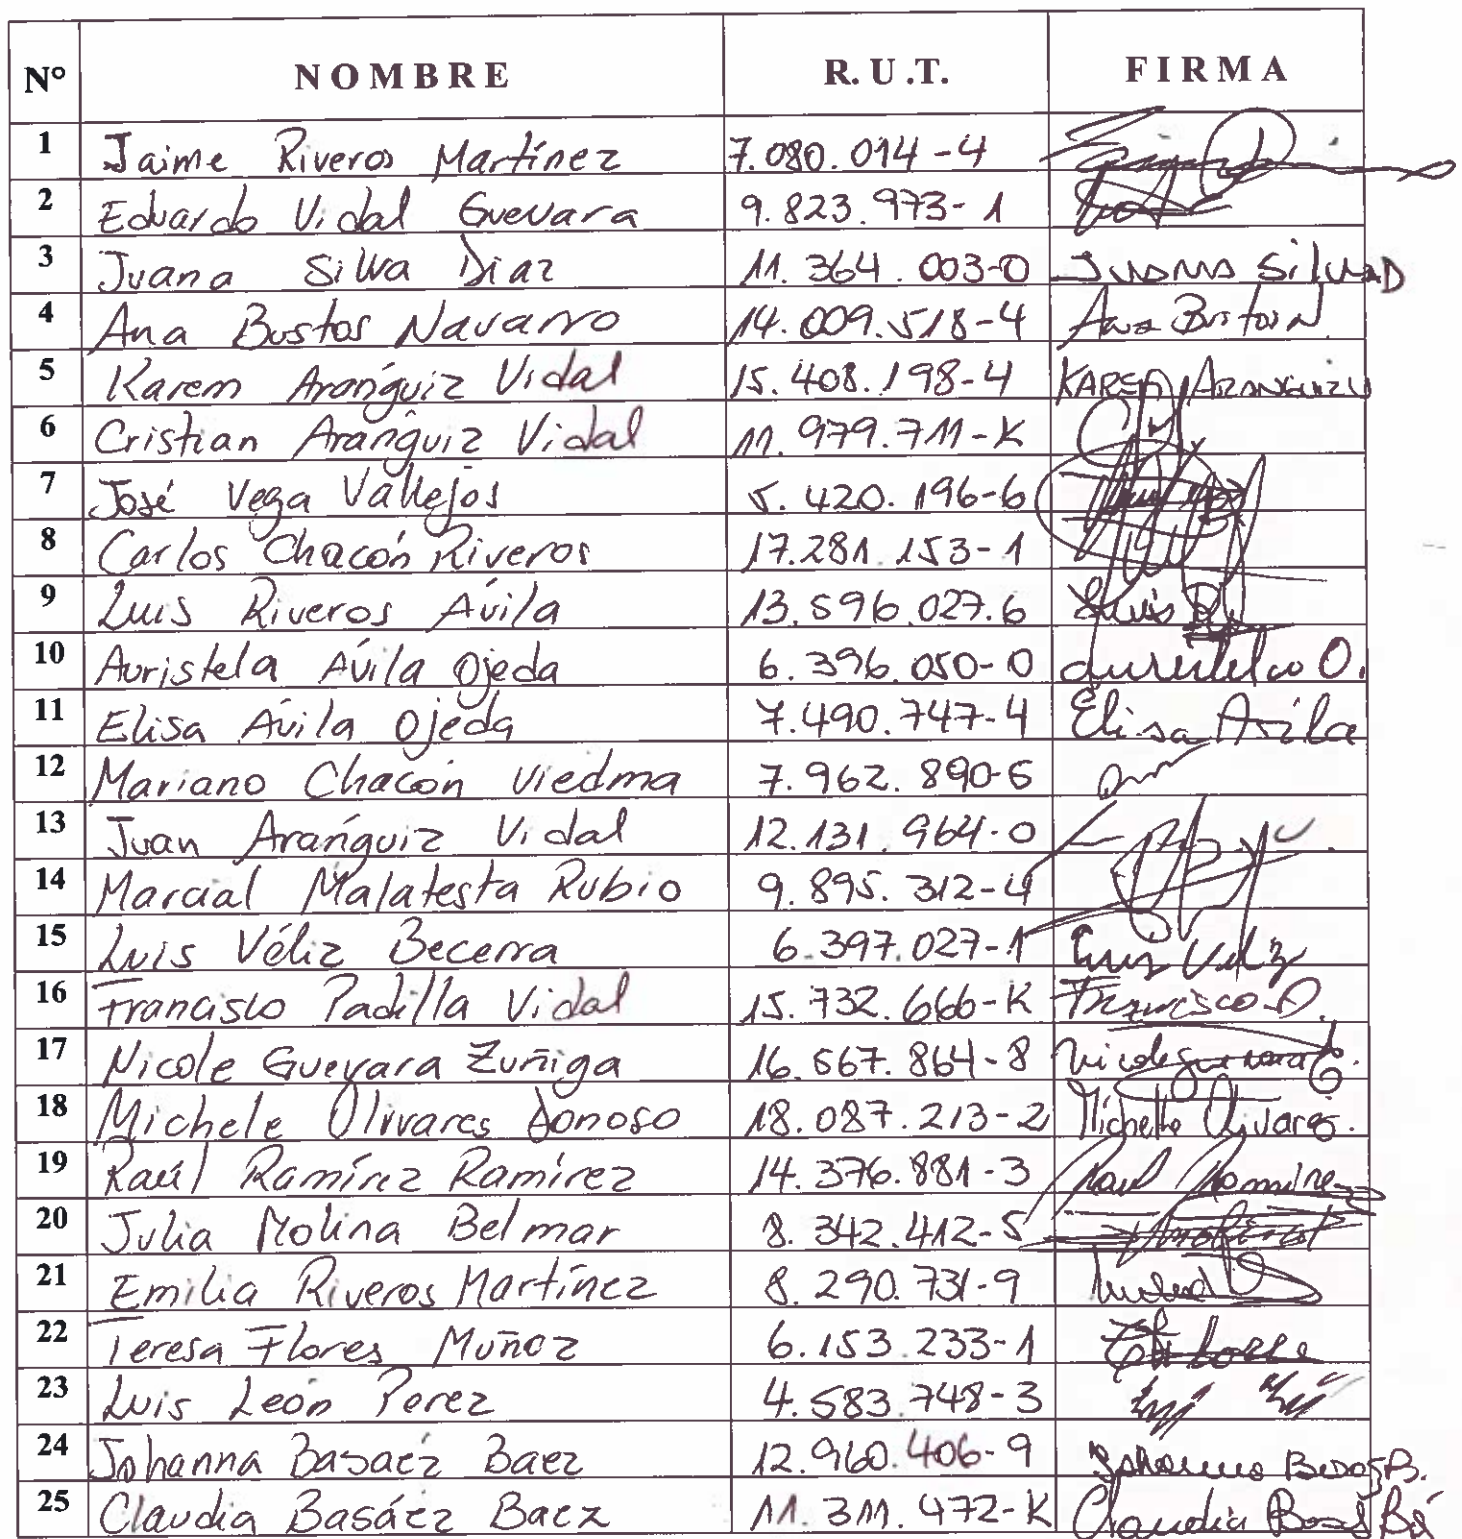 N° NOMBRE R.U.T. FIRMA
1 Jaime Riveros Martínez 7.080.014-4
2 Eduardo Vidal Guevara 9.823.973-1
3 Juana Silva Diaz 11.364.003-0 Juana Silva D
4 Ana Bustos Navarro 14.009.518-4 Ana Bustos N.
5 Karem Aránguiz Vidal 15.408.198-4 KAREM ARANGUIZ V
6 Cristian Aránguiz Vidal 11.979.711-K
7 José Vega Vallejos 5.420.196-6
8 Carlos Chacón Riveros 17.281.153-1
9 Luis Riveros Ávila 13.596.027.6 Luis R
10 Auristela Ávila Ojeda 6.396.050-0
11 Elisa Ávila Ojeda 7.490.747-4 Elisa Avila
12 Mariano Chacón Viedma 7.962.890-5
13 Juan Aránguiz Vidal 12.131.964-0
14 Marcial Malatesta Rubio 9.895.312-4
15 Luis Véliz Becerra 6.397.027-1 Luis Veliz
16 Francisco Padilla Vidal 15.732.666-K Francisco P.
17 Nicole Guevara Zuñiga 16.567.864-8 Nicole guevara
18 Michele Olivares Donoso 18.087.213-2 Michelle Olivares.
19 Raúl Ramírez Ramírez 14.376.881-3 Raul Ramirez
20 Julia Molina Belmar 8.342.412-5
21 Emilia Riveros Martínez 8.290.731-9
22 Teresa Flores Muñoz 6.153.233-1
23 Luis León Perez 4.583.748-3
24 Johanna Basaéz Baez 12.960.406-9
25 Claudia Basáez Baez 11.311.472-K Claudia